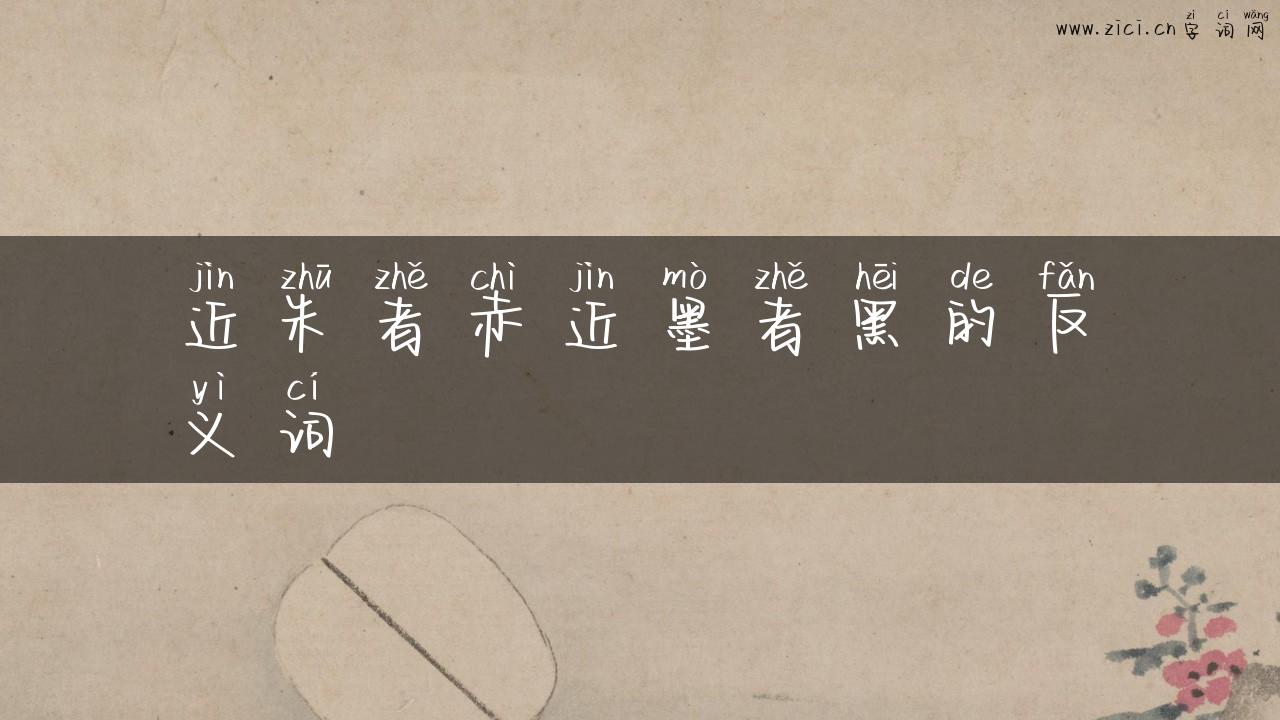 zì cí wǎng
www.zici.cn字词网
jìn zhū zhě chì jìn mò zhě hēi de fǎn
近朱者赤近墨者黑的反
yì cí
义词